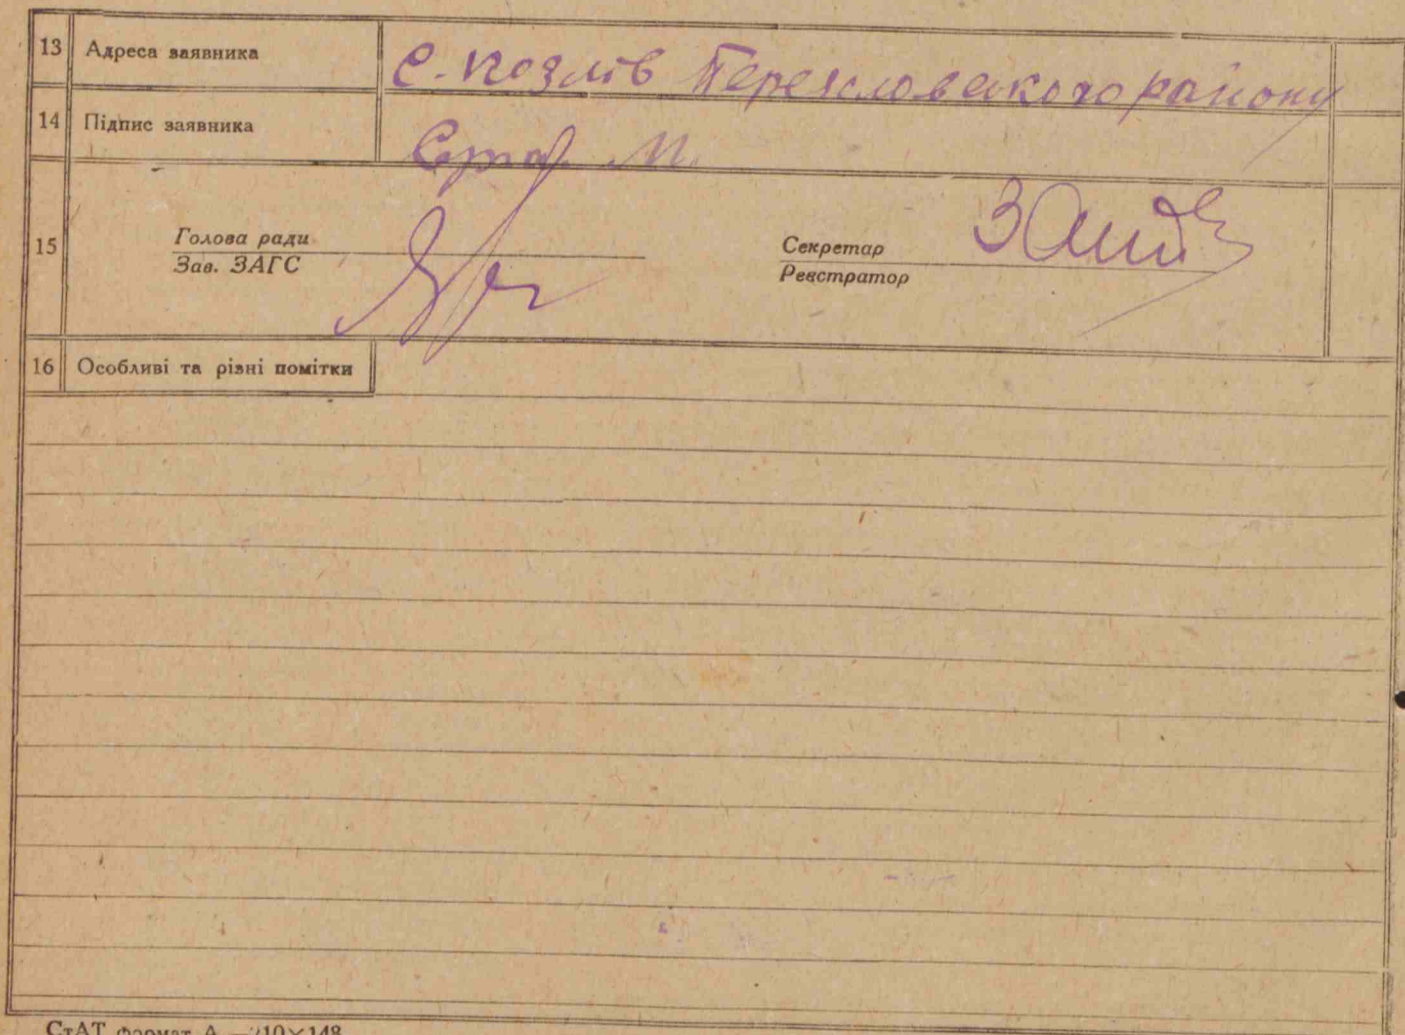 13 Адреса заявника с. Козлів Переяславського району
14 Підпис заявника
15 Голова ради Секретар
Зав. ЗАГС Реєстратор
16 Особливі та різні помітки
СтАТ формат А 210×148